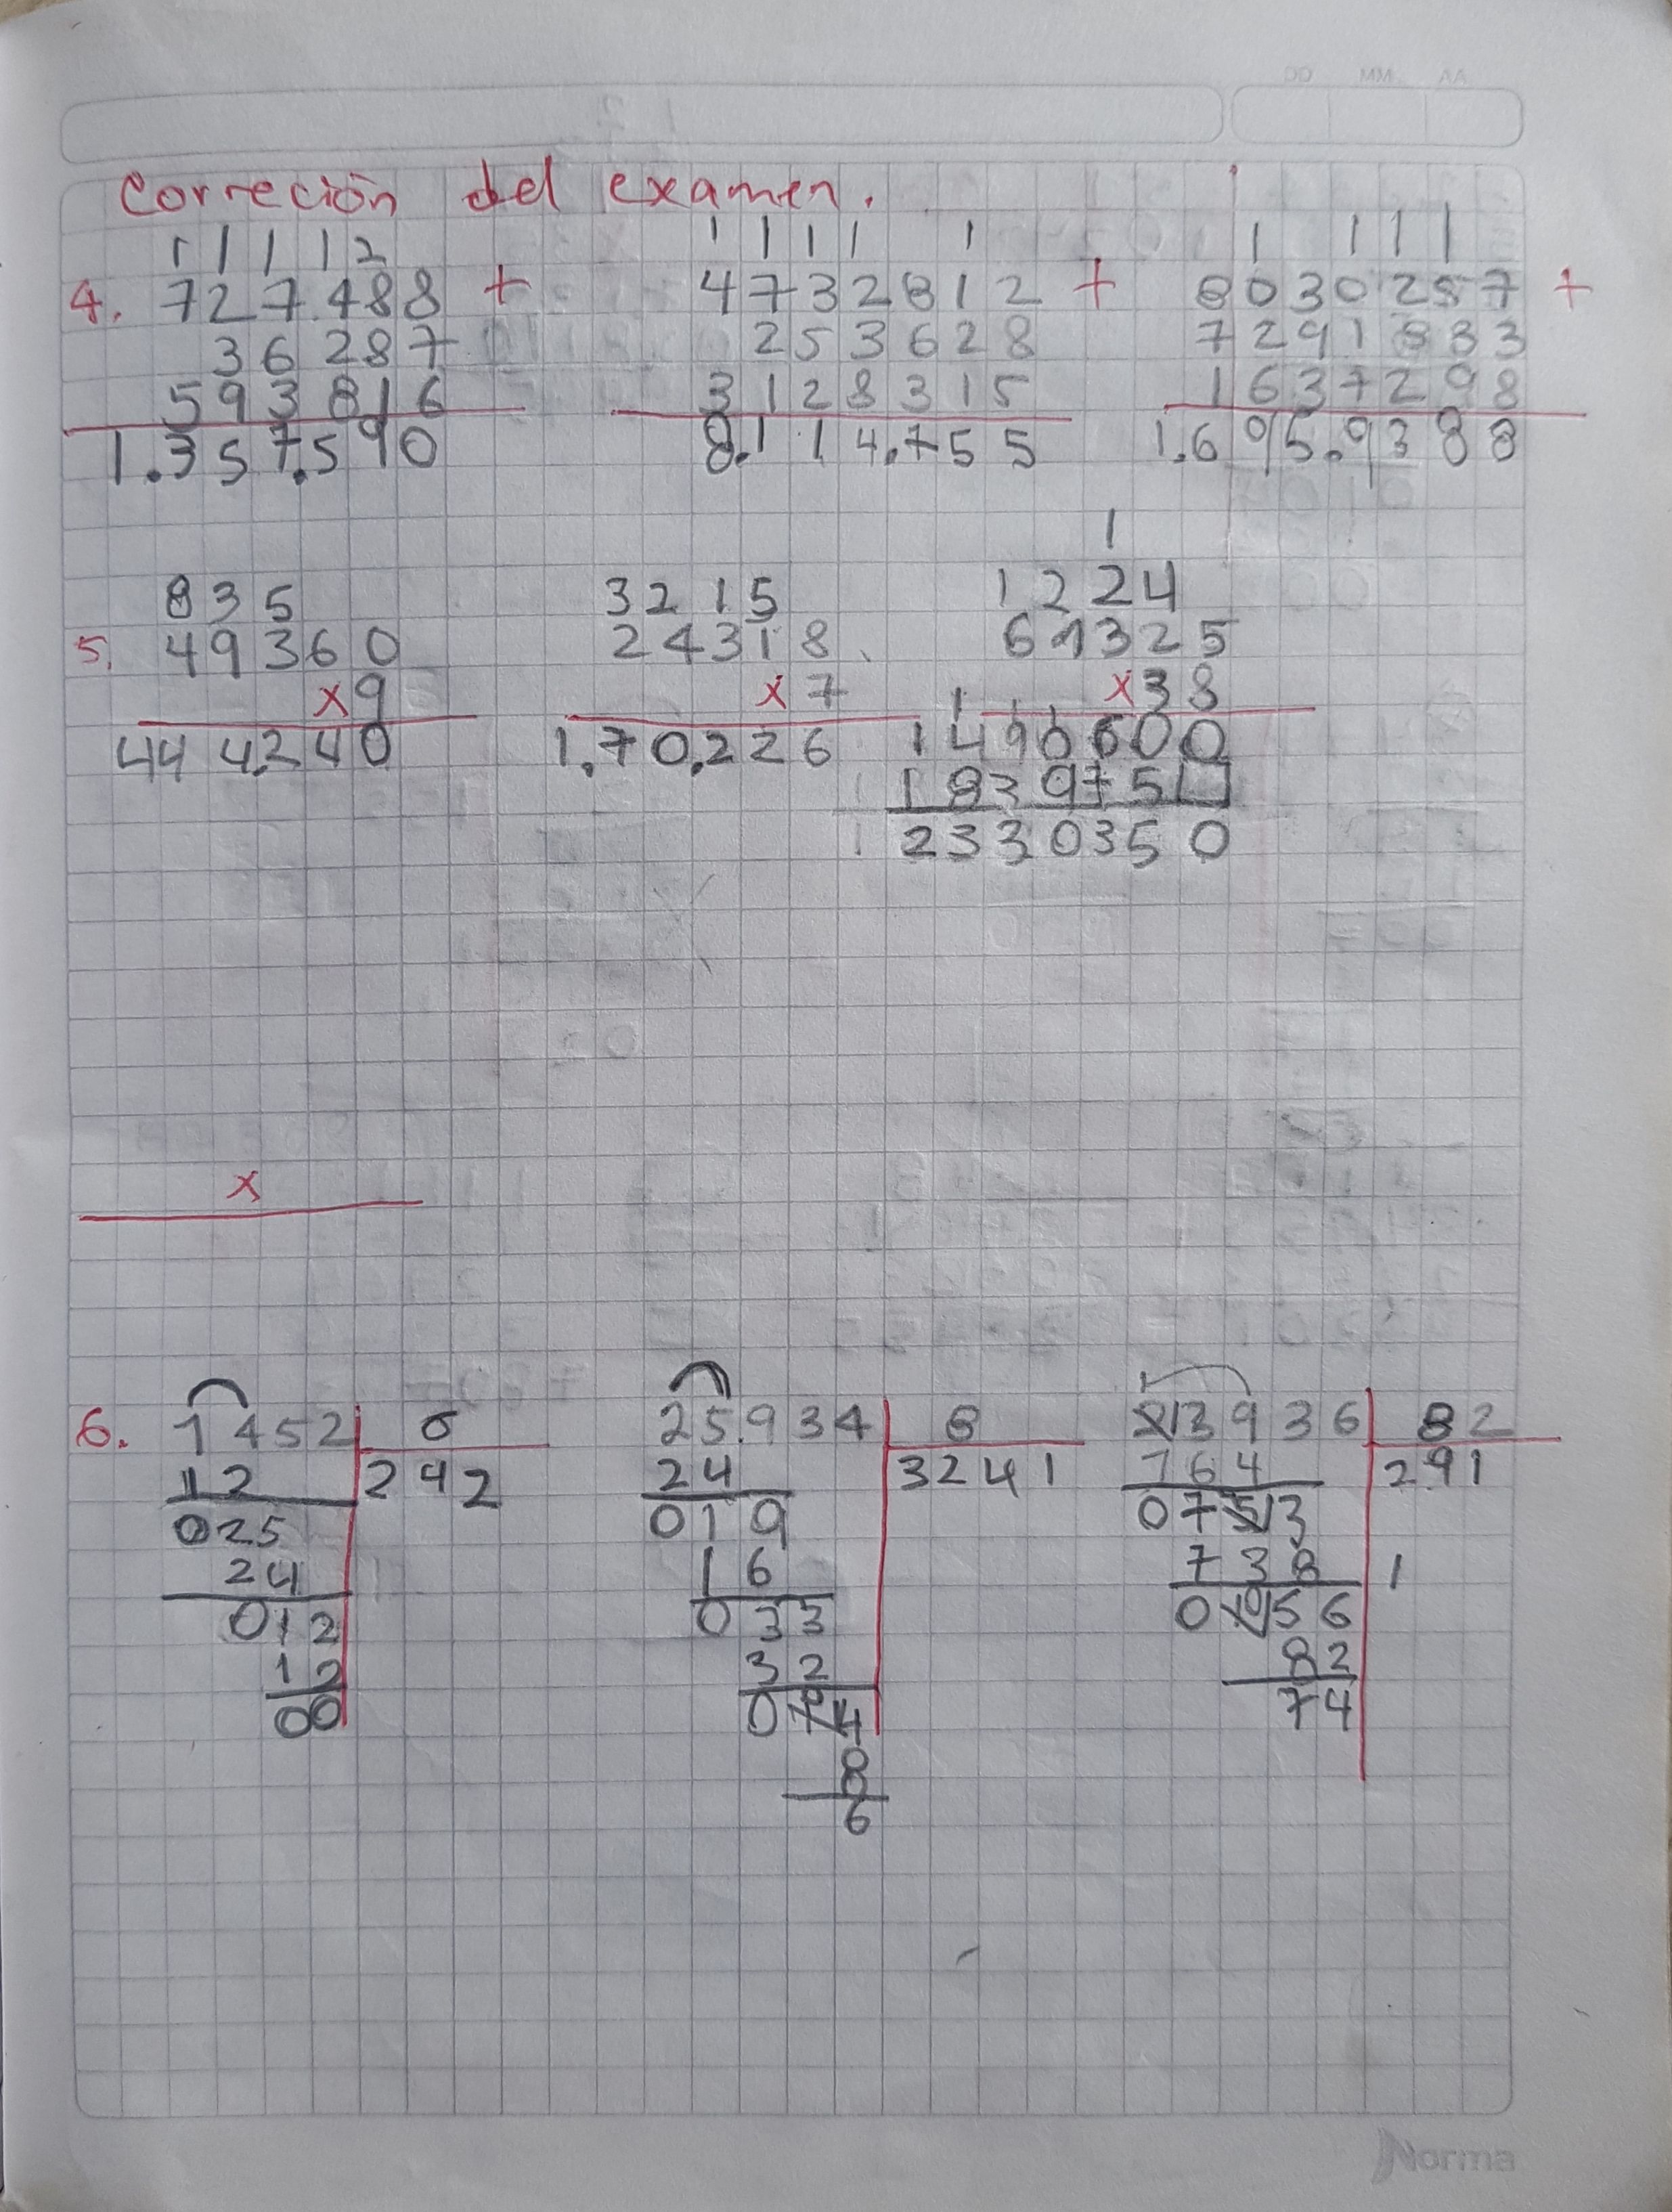 DD MM AA
Correción del examen.
1 1 1 1 2
4. 727.488 +
36 287
593 816
1.357.590
1 1 1 1 1
4732812 +
253628
3128315
8.114.755
1 1 1 1
8030257 +
7291833
1637298
1.695.9388
835
5. 49360
x9
444.240
3215
24318
x7
1.70.226
1
1224
61325
x38
1490600
183975
2330350
x
6. 1452 6
12 242
025
24
012
12
00
25.934 8
24 3241
019
16
033
32
8
6
23936 82
164 291
0753
738 1
56
82
74
Norma